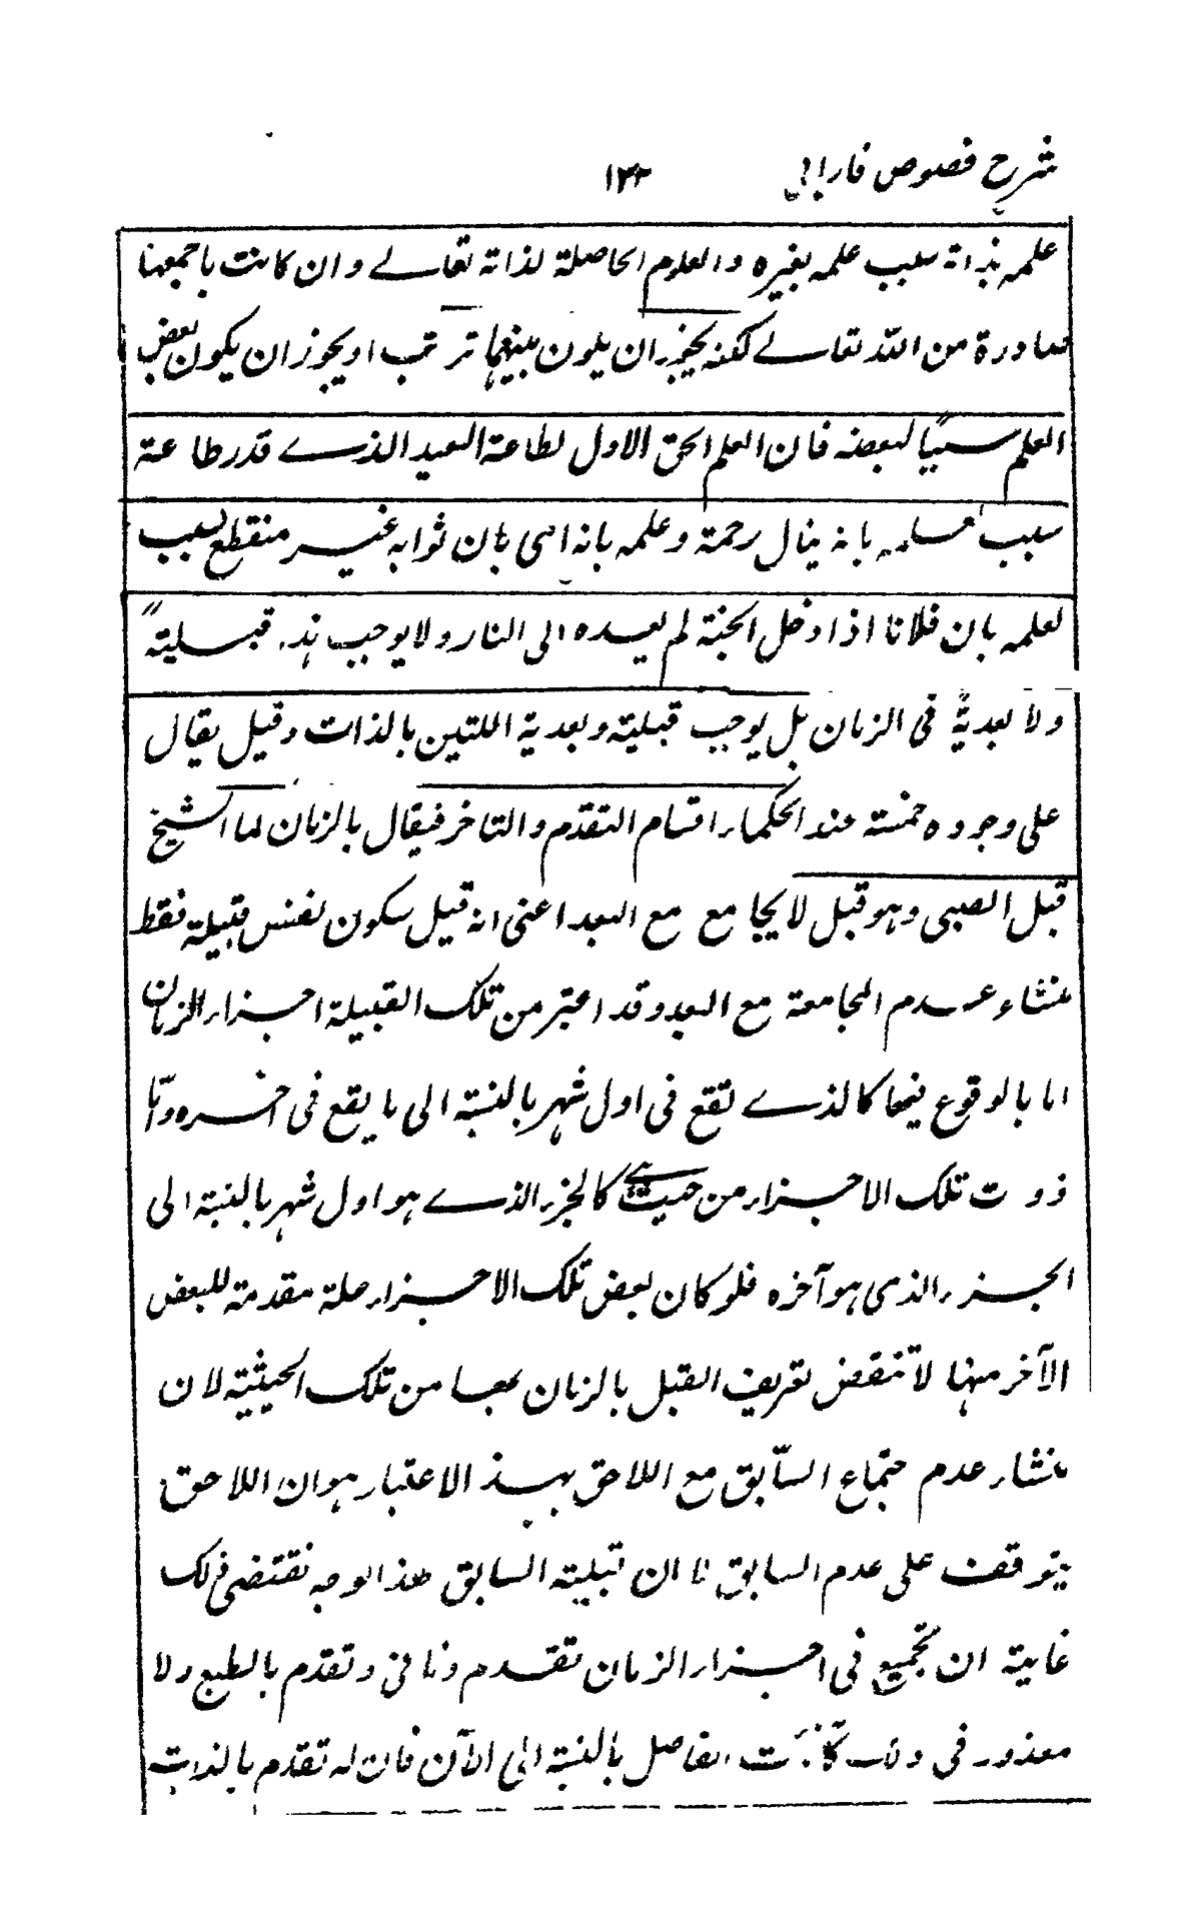 شرح فصوص فارابی ۱۳۲
علمہ بذاتہ سبب علمہ بغیرہ والعلوم الحاصلۃ لذاتہ تعالے وان کانت باجمعہا
صادرۃ من اللہ تعالے لکنہ یجوز ان یکون بینہما ترتب اویجوزان یکون بعض
العلم سببًا لبعضہ فان العلم الحق الاول لطاعۃ العبد الذے قدر طاعتہ
سبب لعلمہ بانہ ینال رحمۃ وعلمہ بانہ ای بان ثوابہ غیر منقطع سبب
لعلمہ بان فلانا اذا دخل الجنۃ لم یعدہ الی النار ولا یوجب ہذہ قبلیۃً
ولا بعدیۃً فی الزمان بل یوجب قبلیۃ وبعدیۃ اللتین بالذات وقیل یقال
علی وجوہ خمستہ عند الحکماء اقسام التقدم والتاخر فیقال بالزمان لما الشیخ
قبل الصبی وہو قبل لا یجامع مع البعد اعنی انہ قیل یکون نفس قبیلۃ فقط
منشاء عدم المجامعۃ مع البعد وقد اعتبر من تلک القبیلۃ اجزاء الزمان
اما بالوقوع فیھا کالذے تقع فی اول شہر بالنسبۃ الی ما یقع فی آخرہ واما
ذوت تلک الاجزاء من حیث ہے کالجزء الذے ہو اول شہر بالنسبۃ الی
الجزء الذی ہو آخرہ فلو کان بعض تلک الاجزاء علۃ مقدمۃ للبعض
الآخر منہا لا تنقض تعریف القبل بالزمان بھا من تلک الحیثیۃ لان
منشاء عدم جتماع السّابق مع اللاحق بہذ الاعتبار ہو ان اللاحق
یتوقف علی عدم السابق لا ان قبلیتہ السابق ھذا الوجہ تقتضی ذلک
غایتہ ان تجمیع فی اجزاء الزمان تقدم زمانی وتقدم بالطبع ولا
معذور فی ذلک الفاصل بالنسبۃ الی الآن فان لہ تقدم بالذات